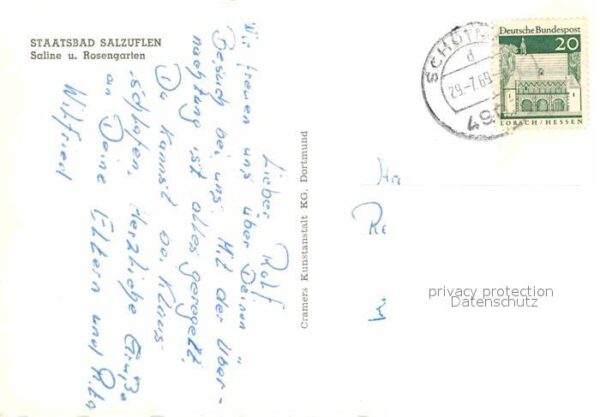 STAATSBAD SALZUFLEN
Saline u. Rosengarten
Lieber Rolf
Wir freuen uns über Deinen
Besuch bei uns. Mit der Über-
nachtung ist alles geregelt.
Du kannst bei Klaus
schlafen. Herzliche Grüße
an Deine Eltern und
Wilfried
Cramers Kunstanstalt KG, Dortmund
SCHÖT
d
29-7.69
490
Deutsche Bundespost
20
LORSCH/HESSEN
privacy protection
Datenschutz